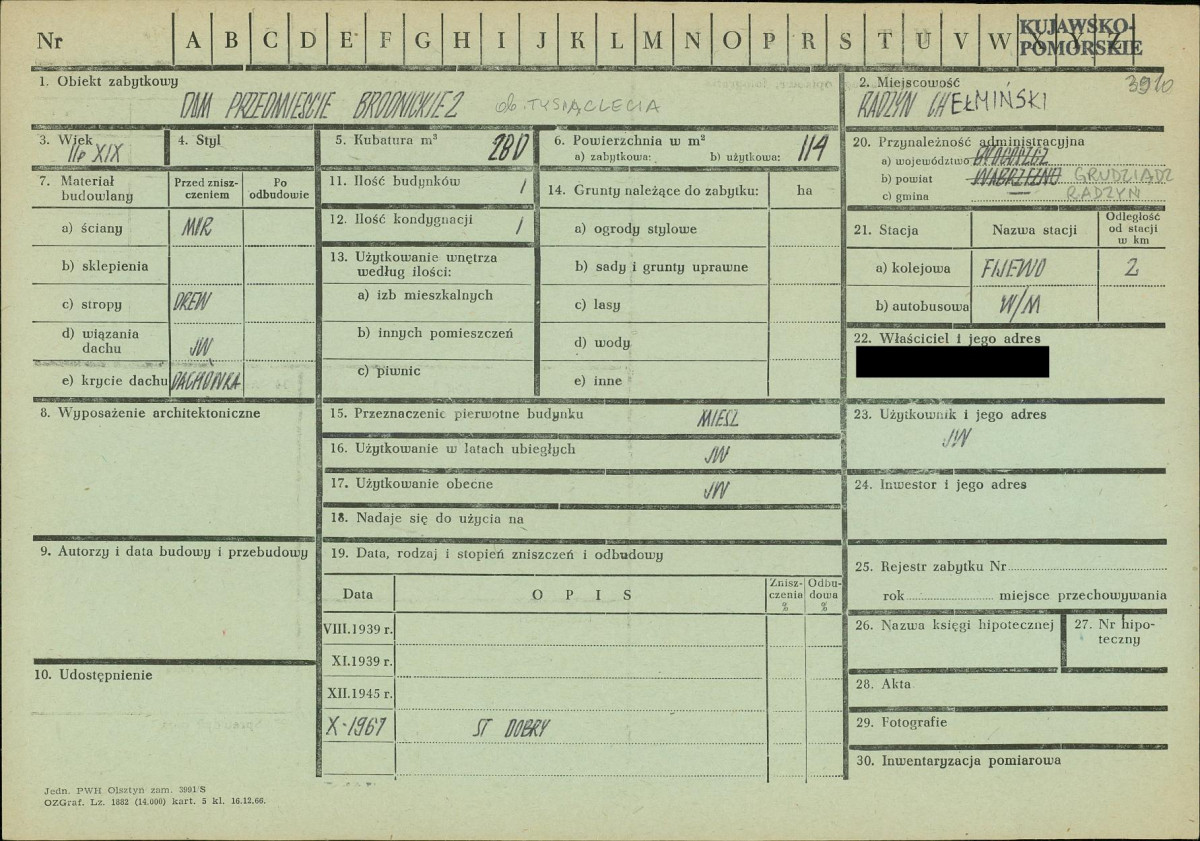 Nr A B C D E F G H I J K L M N O P R S T U V W X Y Z
KUJAWSKO-
POMORSKIE
1. Obiekt zabytkowy
DOM PRZEDMIEŚCIE BRODNICKIE 2 ob. TYSIĄCLECIA
2. Miejscowość
3910
RADZYŃ CHEŁMIŃSKI
3. Wiek
IIp XIX
4. Styl
5. Kubatura m³
280
6. Powierzchnia w m²
a) zabytkowa: b) użytkowa: 114
20. Przynależność administracyjna
a) województwo BYDGOSZCZ
b) powiat WĄBRZEŹNO GRUDZIĄDZ
c) gmina RADZYN
7. Materiał budowlany
Przed zniszczeniem
Po odbudowie
a) ściany MUR
b) sklepienia
c) stropy DREW
d) wiązania dachu JW
e) krycie dachu DACHÓWKA
11. Ilość budynków 1
12. Ilość kondygnacji 1
13. Użytkowanie wnętrza według ilości:
a) izb mieszkalnych
b) innych pomieszczeń
c) piwnic
14. Grunty należące do zabytku: ha
a) ogrody stylowe
b) sady i grunty uprawne
c) lasy
d) wody
e) inne
21. Stacja
Nazwa stacji
Odległość od stacji w km
a) kolejowa FIJEWO 2
b) autobusowa W/M
22. Właściciel i jego adres
8. Wyposażenie architektoniczne
15. Przeznaczenie pierwotne budynku MIESZ
16. Użytkowanie w latach ubiegłych JW
17. Użytkowanie obecne JW
18. Nadaje się do użycia na
23. Użytkownik i jego adres
JW
24. Inwestor i jego adres
9. Autorzy i data budowy i przebudowy
19. Data, rodzaj i stopień zniszczeń i odbudowy
Data
O P I S
Zniszczenia %
Odbudowa %
VIII.1939 r.
XI.1939 r.
XII.1945 r.
X-1967 ST DOBRY
10. Udostępnienie
25. Rejestr zabytku Nr
rok miejsce przechowywania
26. Nazwa księgi hipotecznej
27. Nr hipoteczny
28. Akta
29. Fotografie
30. Inwentaryzacja pomiarowa
Jedn. PWH Olsztyn zam. 3991/S
OZGraf. Lz. 1882 (14.000) kart. 5 kl. 16.12.66.